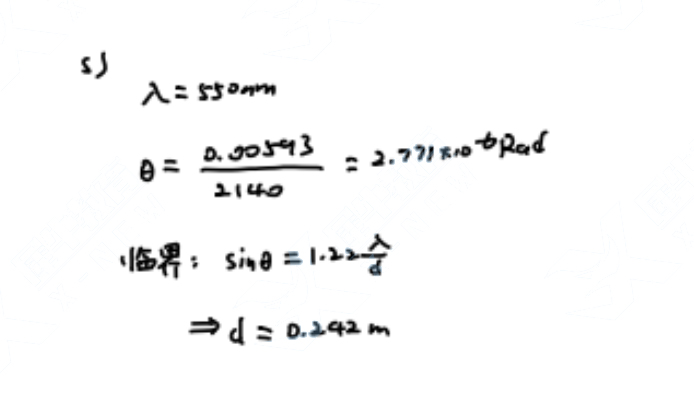 5)
λ = 550nm
θ = 0.00593 / 2140 = 2.771×10^-6 Rad
临界: sinθ = 1.22 λ/d
⇒ d = 0.242 m